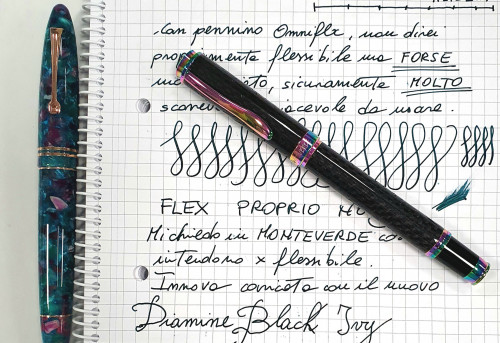 con pennino Omniflex, non direi
propriamente flessibile ma FORSE
sicuramente MOLTO
da usare.
FLEX PROPRIO
Mi chiedo in MONTEVERDE
intendono x flessibile.
Innova caricata con il nuovo
Diamine Black Ivy